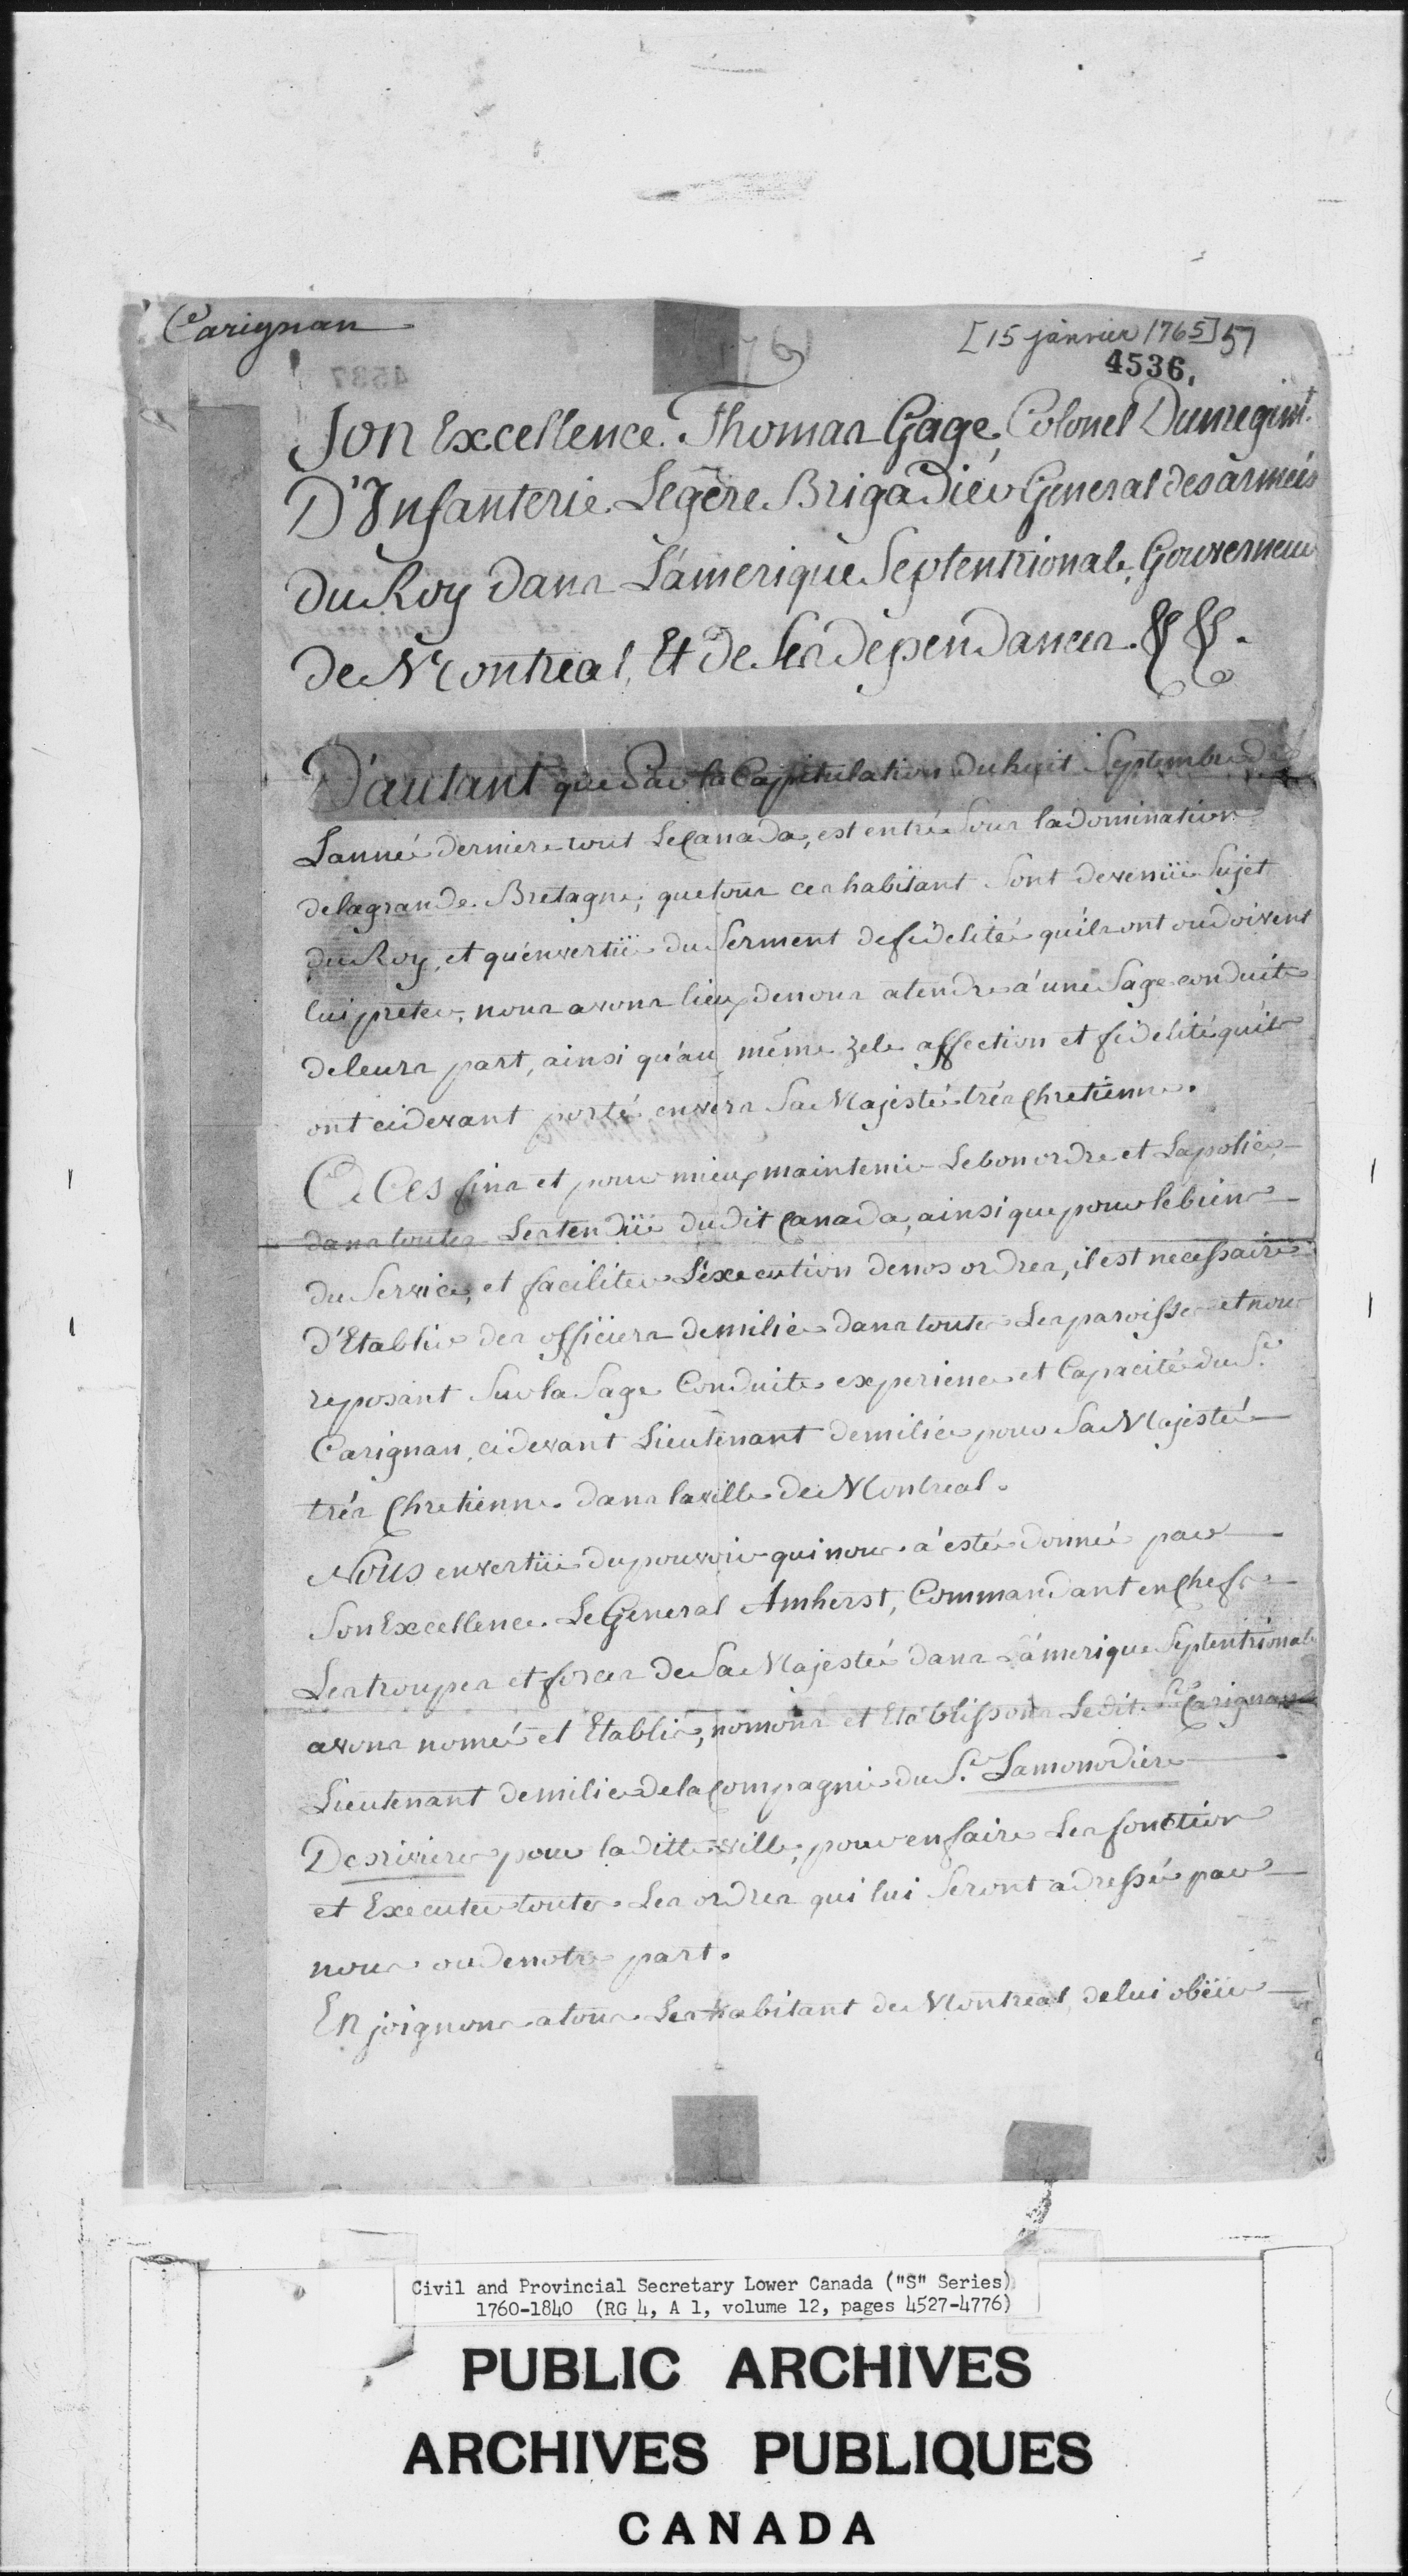 Carignan
[15 janvier 1765] 57
4536.
Son Excellence Thomas Gage, Colonel Dunregimt.
D'Infanterie Legère Brigadiér General des armeés
du Roy dans L'amerique Septentrionale, Gouverneur
de Montreal, Et de Ses dependances. && .
D'autant que Par la Capitulation du huit Septembre de
L'anneé derniere tout Le Canada, est entré Sous la domination
de la grande Bretagne, que tous ces habitant Sont devenüe Sujet
du Roy, et qu'en vertüe du Serment de fidelité qu'ils ont ou doivent
lui preter, nous avons lieu de nous atendre a' une Sage conduite
de leurs part, ainsi qu'au même zele affection et fidelité qu'ils
ont cidevant porté envers Sa Majesté trés Chretienne.
A Ces fins et pour mieux maintenir Le bon ordre et La police
dans toutes Lestendüe dudit Canada, ainsi que pour le bien
du Service, et faciliter L'execution de nos ordres, il est necessaire
d'Etablir des officiers de milice dans toutes Les paroisses et nous
reposant Sur la Sage Conduite experience et Capacité du Sr.
Carignan, cidevant Lieutenant de milice pour Sa Majesté
trés Chretienne dans la ville de Montreal.
Nous en vertüe du pouvoir qui nous a' esté donneé par
Son Excellence Le General Amherst, Commandant en Chef
Les troupes et forces de Sa Majesté dans L'amerique Septentrionale
avons nomé et Etablie, nomons et Etablissons Ledit Sr. Carignan
Lieutenant de milice de la Compagnie du Sr. Lamonodiere
Desriviere pour la ditte ville, pour en faire Les fonction
et Executer toutes Les ordres qui lui Seront adressé par
nous ou de notre part.
Enjoignons a tous Les habitant de Montreal de lui obëir
Civil and Provincial Secretary Lower Canada ("S" Series)
1760-1840 (RG 4, A 1, volume 12, pages 4527-4776)
PUBLIC ARCHIVES
ARCHIVES PUBLIQUES
CANADA